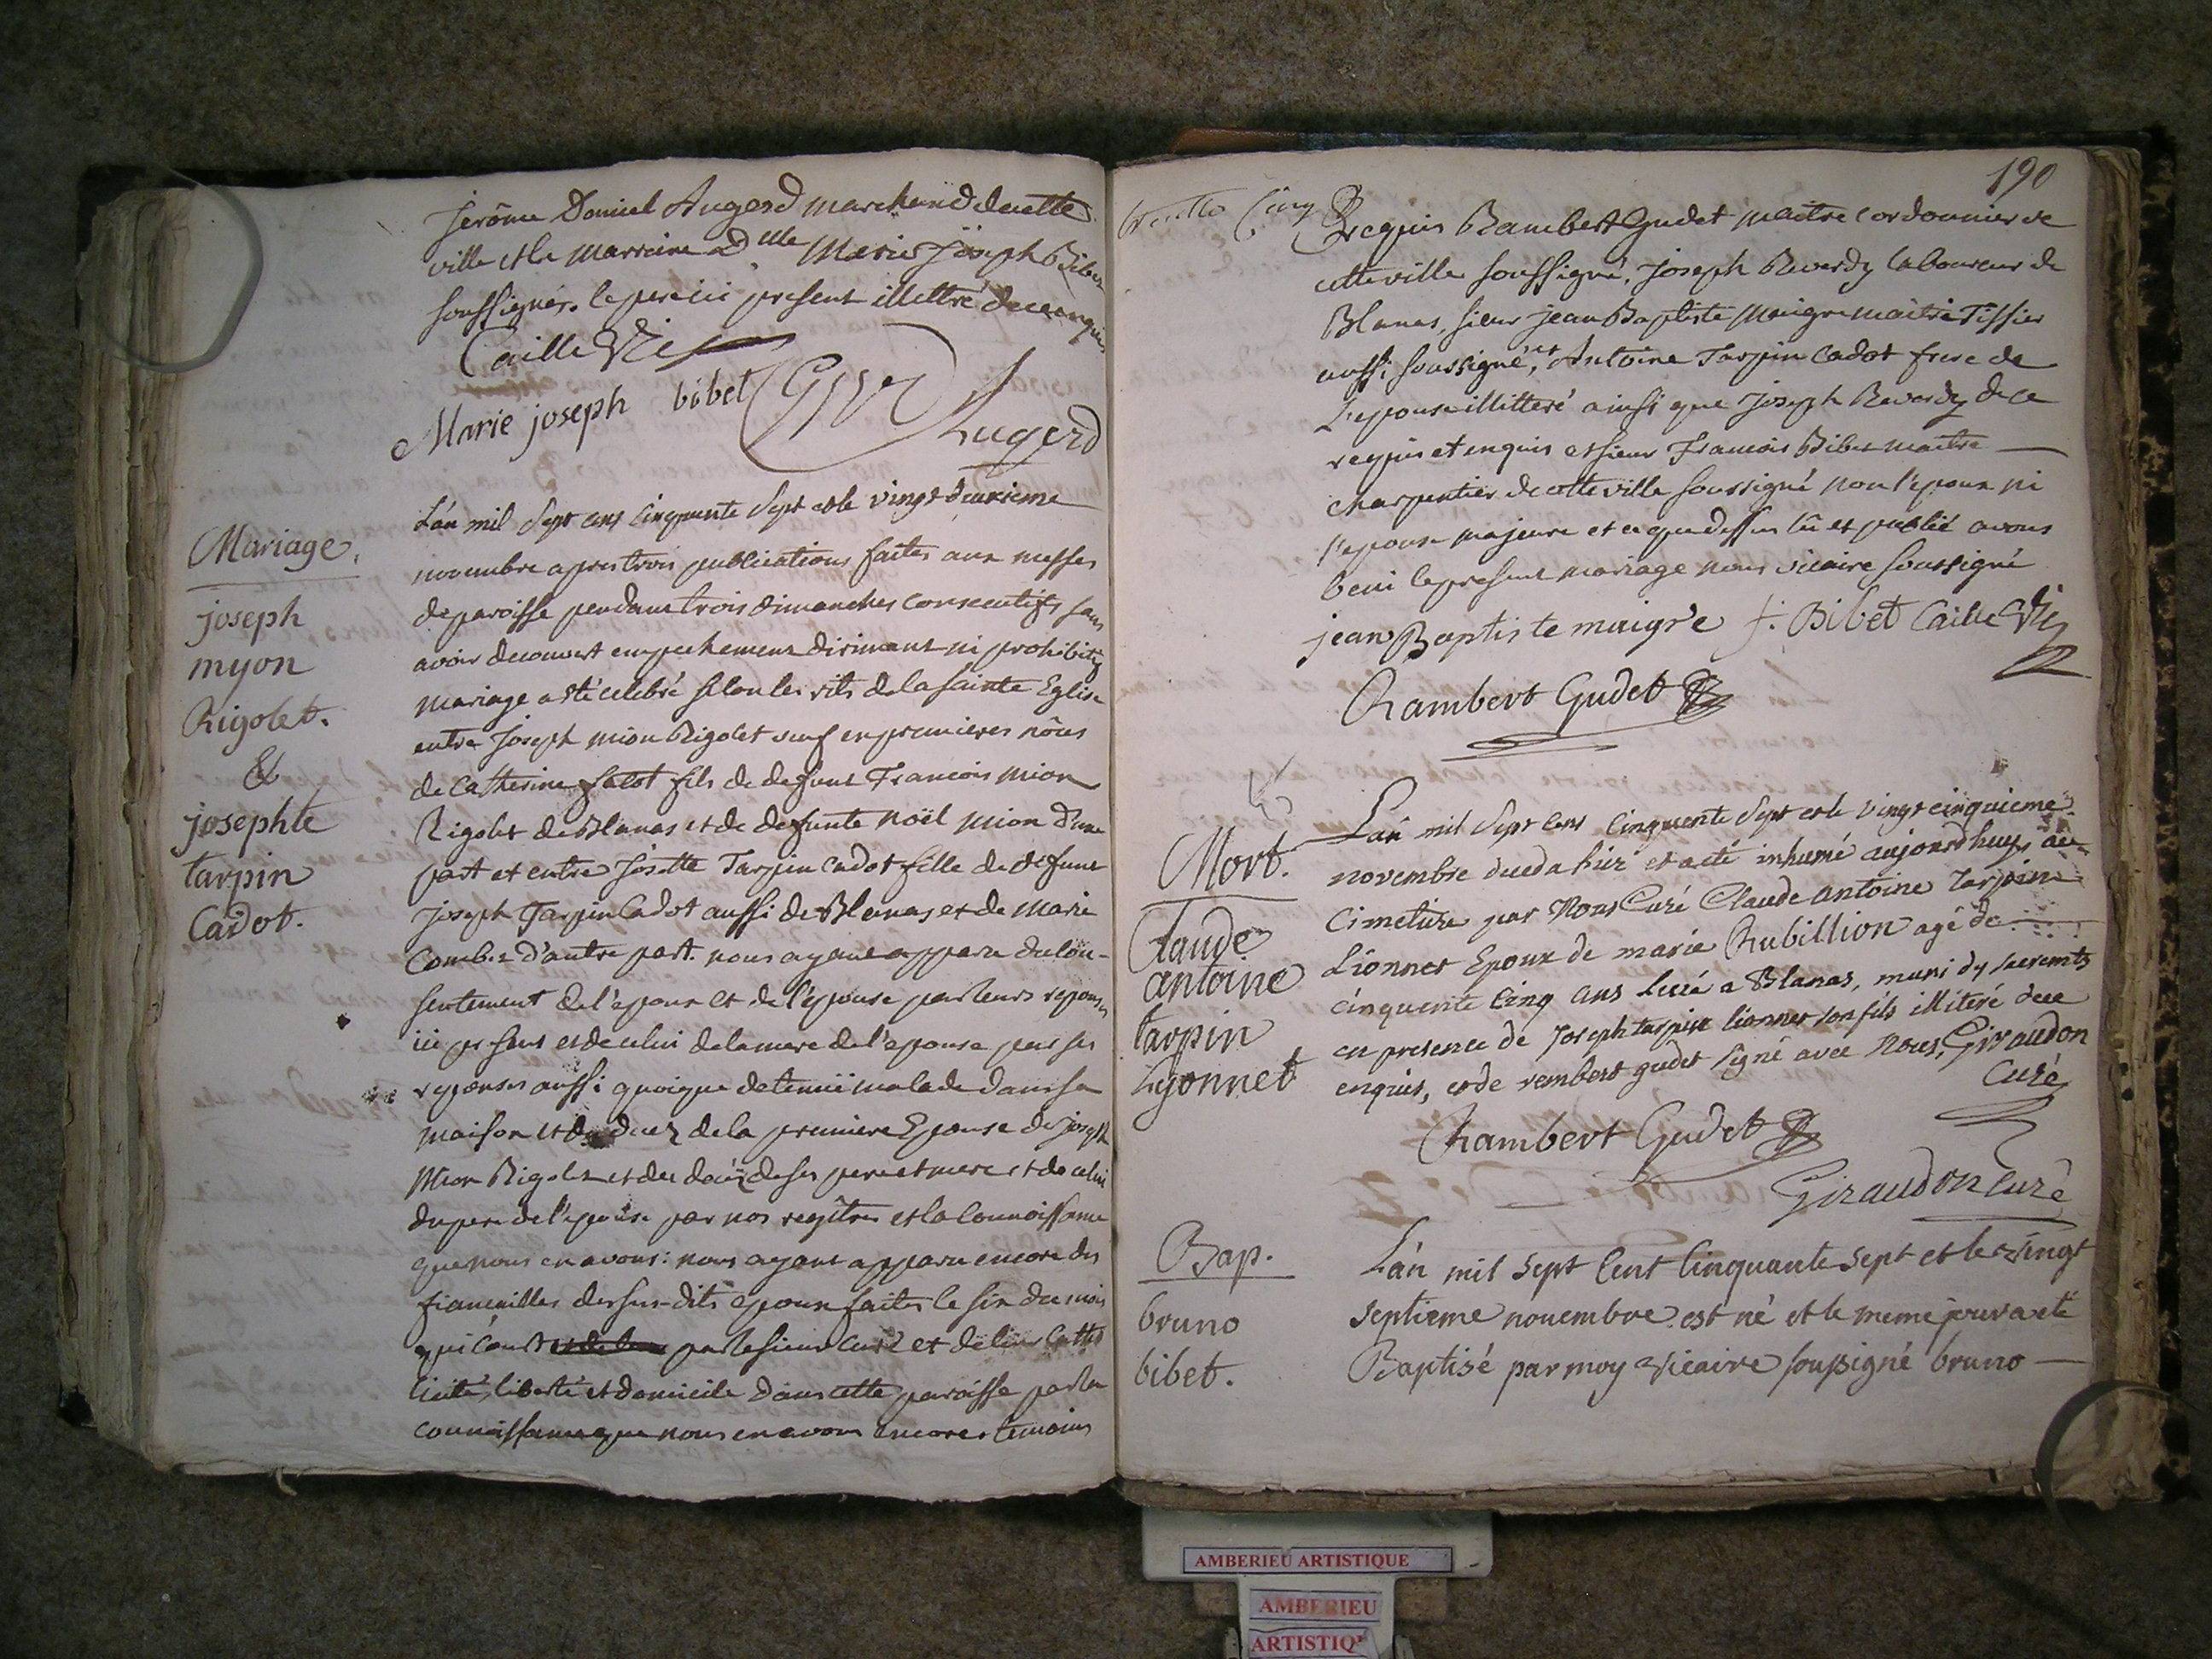 jerôme Daniel Augerd marchand decette
ville et la marraine d.lle Marie Joseph Bibet
soussignés. le pere ici present illettré de ce enquis
Caille vic
Marie joseph bibet
Augerd
Mariage.
joseph
myon
Rigolet.
&
josephte
tarpin
Cadot.
L'an mil sept cens cinquante sept et le vingt deuxieme
novembre apres trois publications faites aux messes
de paroisse pendant trois dimanches consecutifs sans
avoir decouvert empechement dirimant ni prohibitif
mariage a été celebré selon les rits de la sainte Eglise
entre Joseph mion Rigolet veuf en premieres nôces
de Catherine falot fils de defunt Francois mion
Rigolet de Blanas et de defunte noël mion d'une
part et entre Josette Tarpin Cadot fille de defunt
Joseph Tarpin Cadot aussi de Blanas et de Marie
Combet d'autre part. nous ayant apparu du con-
sentement de l'epoux et de l'épouse par leurs reponses
ici presens et de celui de la mere de l'epouse par ses
reponses aussi quoique detenüe malade dans sa
maison et du decez de la premiere Epouse de joseph
Mion Rigolet et des decéz de ses pere et mere et de celui
du pere de l'epouse par nos regîtres et la connoissance
que nous en avons: nous ayant apparu encore des
fiancailles dessus-dits epoux faites le six du mois
qui court par le sieur curé et de leur catho
licité, liberté et domicile dans cette paroisse par la
connaissance que nous en avons encore temoins
190
cinq
requis Rambert Gudet maitre cordonnier de
cette ville soussigné, Joseph Reverdy laboureur de
Blanas, sieur jean Baptiste Maigre maître Tissier
aussi soussigné, et Antoine Tarpin Cadot frere de
l'epouse illitteré ainsi que Joseph Reverdy de ce
requis et enquis et sieur Francois Bibet maitre
charpentier de cette ville soussigné non l'epoux ni
l'epouse majeure et ce que dessus lû et publié avons
beni le present mariage nous vicaire soussigné
jean Baptiste maigre f. Bibet Caille vic
Rambert Gudet
Mort.
Claude
antoine
tarpin
Lyonnet
L'an mil sept cens cinquante sept et le vingt cinquieme
novembre deceda hier et a eté inhumé aujourdhuy au
Cimetiere par Nous Curé Claude antoine Tarpin
Lionnet Epoux de marie Rubillion agé de
cinquante cinq ans a Blanas, muni des sacremts
en presence de Joseph tarpin lionnet son fils illiteré de ce
enquis, et de rembert gudet signé avec Nous, Giraudon
Curé
Rambert Gudet
Giraudon curé
Bap.
bruno
bibet.
L'an mil sept cent cinquante sept et le vingt
septieme novembre est né et le meme jour a eté
Baptisé par moy vicaire soussigné bruno
AMBERIEU ARTISTIQUE
AMBERIEU
ARTISTIQ